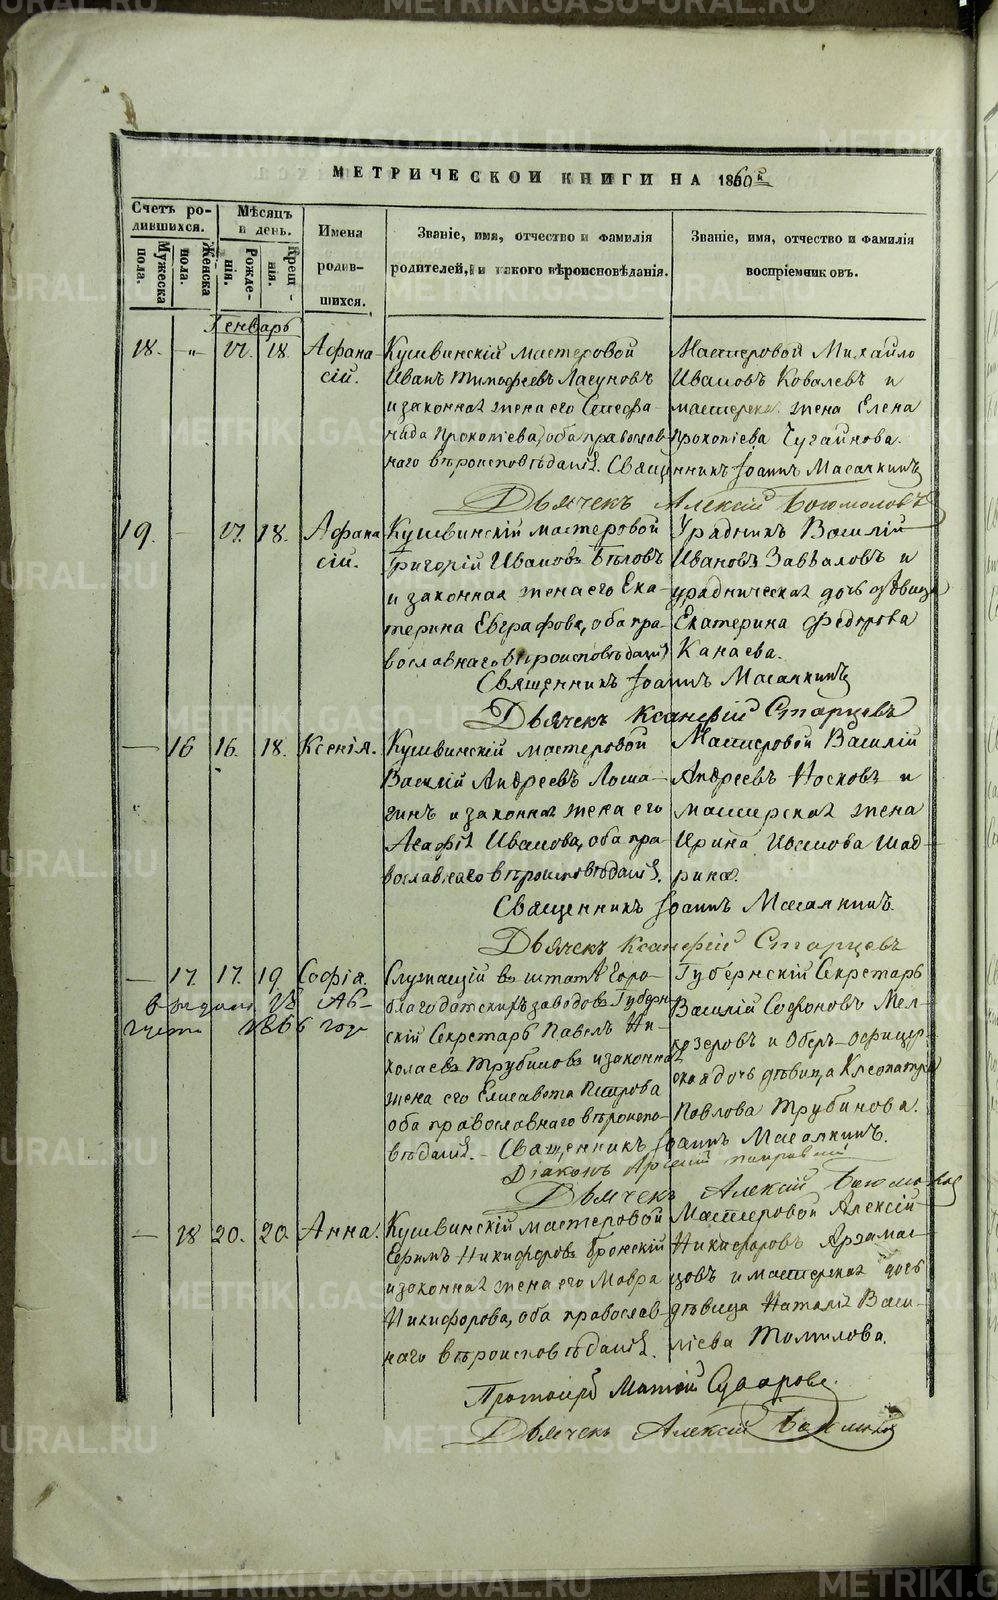 МЕТРИЧЕСКОЙ КНИГИ НА 1860й
Счетъ родившихся.
Мужеска пола.
Женска пола.
Мѣсяцъ и день.
Рожденія.
Крещенія.
Имена родившихся.
Званіе, имя, отчество и фамилія родителей, и какого вѣроисповѣданія.
Званіе, имя, отчество и фамилія воспріемниковъ.
Генварь
18. — 17. 18. Афанасій.
Кушвинскій мастеровой
Иванъ Тимофеевъ Лагуновъ
и законная жена его Стефа-
нида Прокопіева, оба православ-
наго вѣроисповѣданія.
Мастеровой Михайло
Ивановъ Ковалевъ и
мастерская жена Елена
Прокопіева Чугайнова.
Священникъ Іоаннъ Масалкинъ
Дьячекъ Алексій Богомоловъ
19. — 17. 18. Афанасій.
Кушвинскій мастеровой
Григорій Ивановъ Бѣловъ
и законная жена его Ека-
терина Евграфова, оба пра-
вославнаго вѣроисповѣданія
Урядникъ Василій
Ивановъ Завьяловъ и
урядническая дочь дѣвица
Екатерина Федорова
Канаева.
Священникъ Іоаннъ Масалкинъ
Дьячекъ Ксанфій Старцевъ
— 16 16. 18. Ксенія.
Кушвинскій мастеровой
Василій Андреевъ Лоша-
гинъ и законная жена его
Агафія Иванова, оба пра-
вославнаго вѣроисповѣданія.
Мастеровой Василій
Андреевъ Носковъ и
мастерская жена
Ирина Иванова Шад-
рина.
Священникъ Іоаннъ Масалкинъ.
Дьячекъ Ксанфій Старцевъ
— 17. 17. 19 Софія.
1866 года
Служащій въ штатѣ Горо-
благодатскихъ заводовъ Губерн-
скій Секретарь Павелъ Ни-
колаевъ Трубиновъ и законная
жена его Елисавета Петрова
оба православнаго вѣроиспо-
вѣданія.
Губернскій Секретарь
Василій Софоновъ Мел-
козеровъ и Оберъ-офицер-
ская дочь дѣвица Клеопатра
Павлова Трубинова.
Священникъ Іоаннъ Масалкинъ.
Діаконъ
Дьячекъ Алексій Богомоловъ
— 18 20. 20 Анна.
Кушвинскій мастеровой
Ефимъ Никифоровъ Бронскій
и законная жена его Мавра
Никифорова, оба православ-
наго вѣроисповѣданія.
Мастеровой Алексій
Никифоровъ Арзамас-
цовъ и мастерская дочь
дѣвица Наталія Васи-
лieва Томилова.
Протоіерей
Дьячекъ Алексій Богомоловъ
METRIKI.GASO-URAL.RU